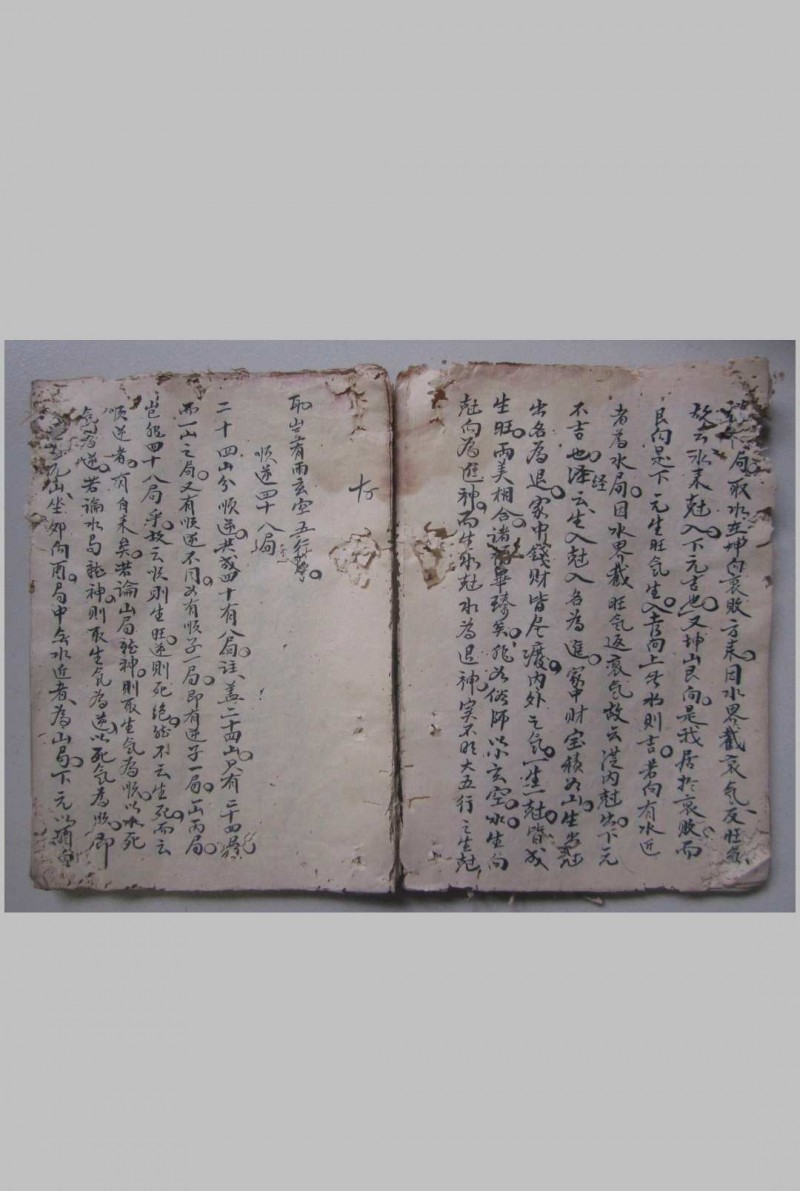 下局取水在坤向衰敗方来因水界截衰氣反旺氣
故云水来尅入下元吉也又坤山艮向是我居於衰敗而
艮向是下元生旺氣生入吉向上無水則吉若向有水近
者為水局因水界截旺氣返衰氣故云從内尅出下元
不吉也經云生入尅入名為進家中財宝積如山生出尅
出名為退家中錢財皆尽廢内外之氣一生一尅皆成
生旺兩美相合諸福畢臻矣能如俗師以小玄空水生向
尅向為進神而生水尅水為退神実不明大五行之生尅
耶豈有兩玄空五行
順逆四十八局
二十四山分順逆共成四十有八局註盖二十四山只有二十四
而一山之局又有順逆不同如有順子一局即有逆子一局山丙局
豈能四十八局乎故云順則生旺逆則死絶然不云生死而云
順逆者有自来矣若論山局龍神則取生氣為順以死
氣為逆若論水局龍神則取生氣為逆以死氣為順即
山坐卯向酉局中無水近者為山局下元以